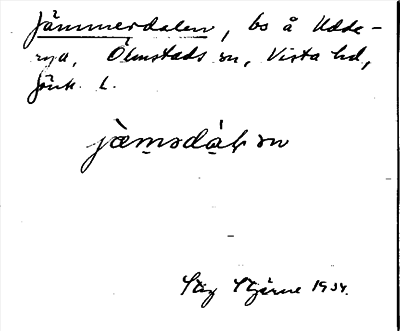 Jämmerdalen, bo å Udde-
ryd, Ölmstads sn, Vista hd,
Jönk. L.
jæmsdál, sn
Stig Stjärne 1934.